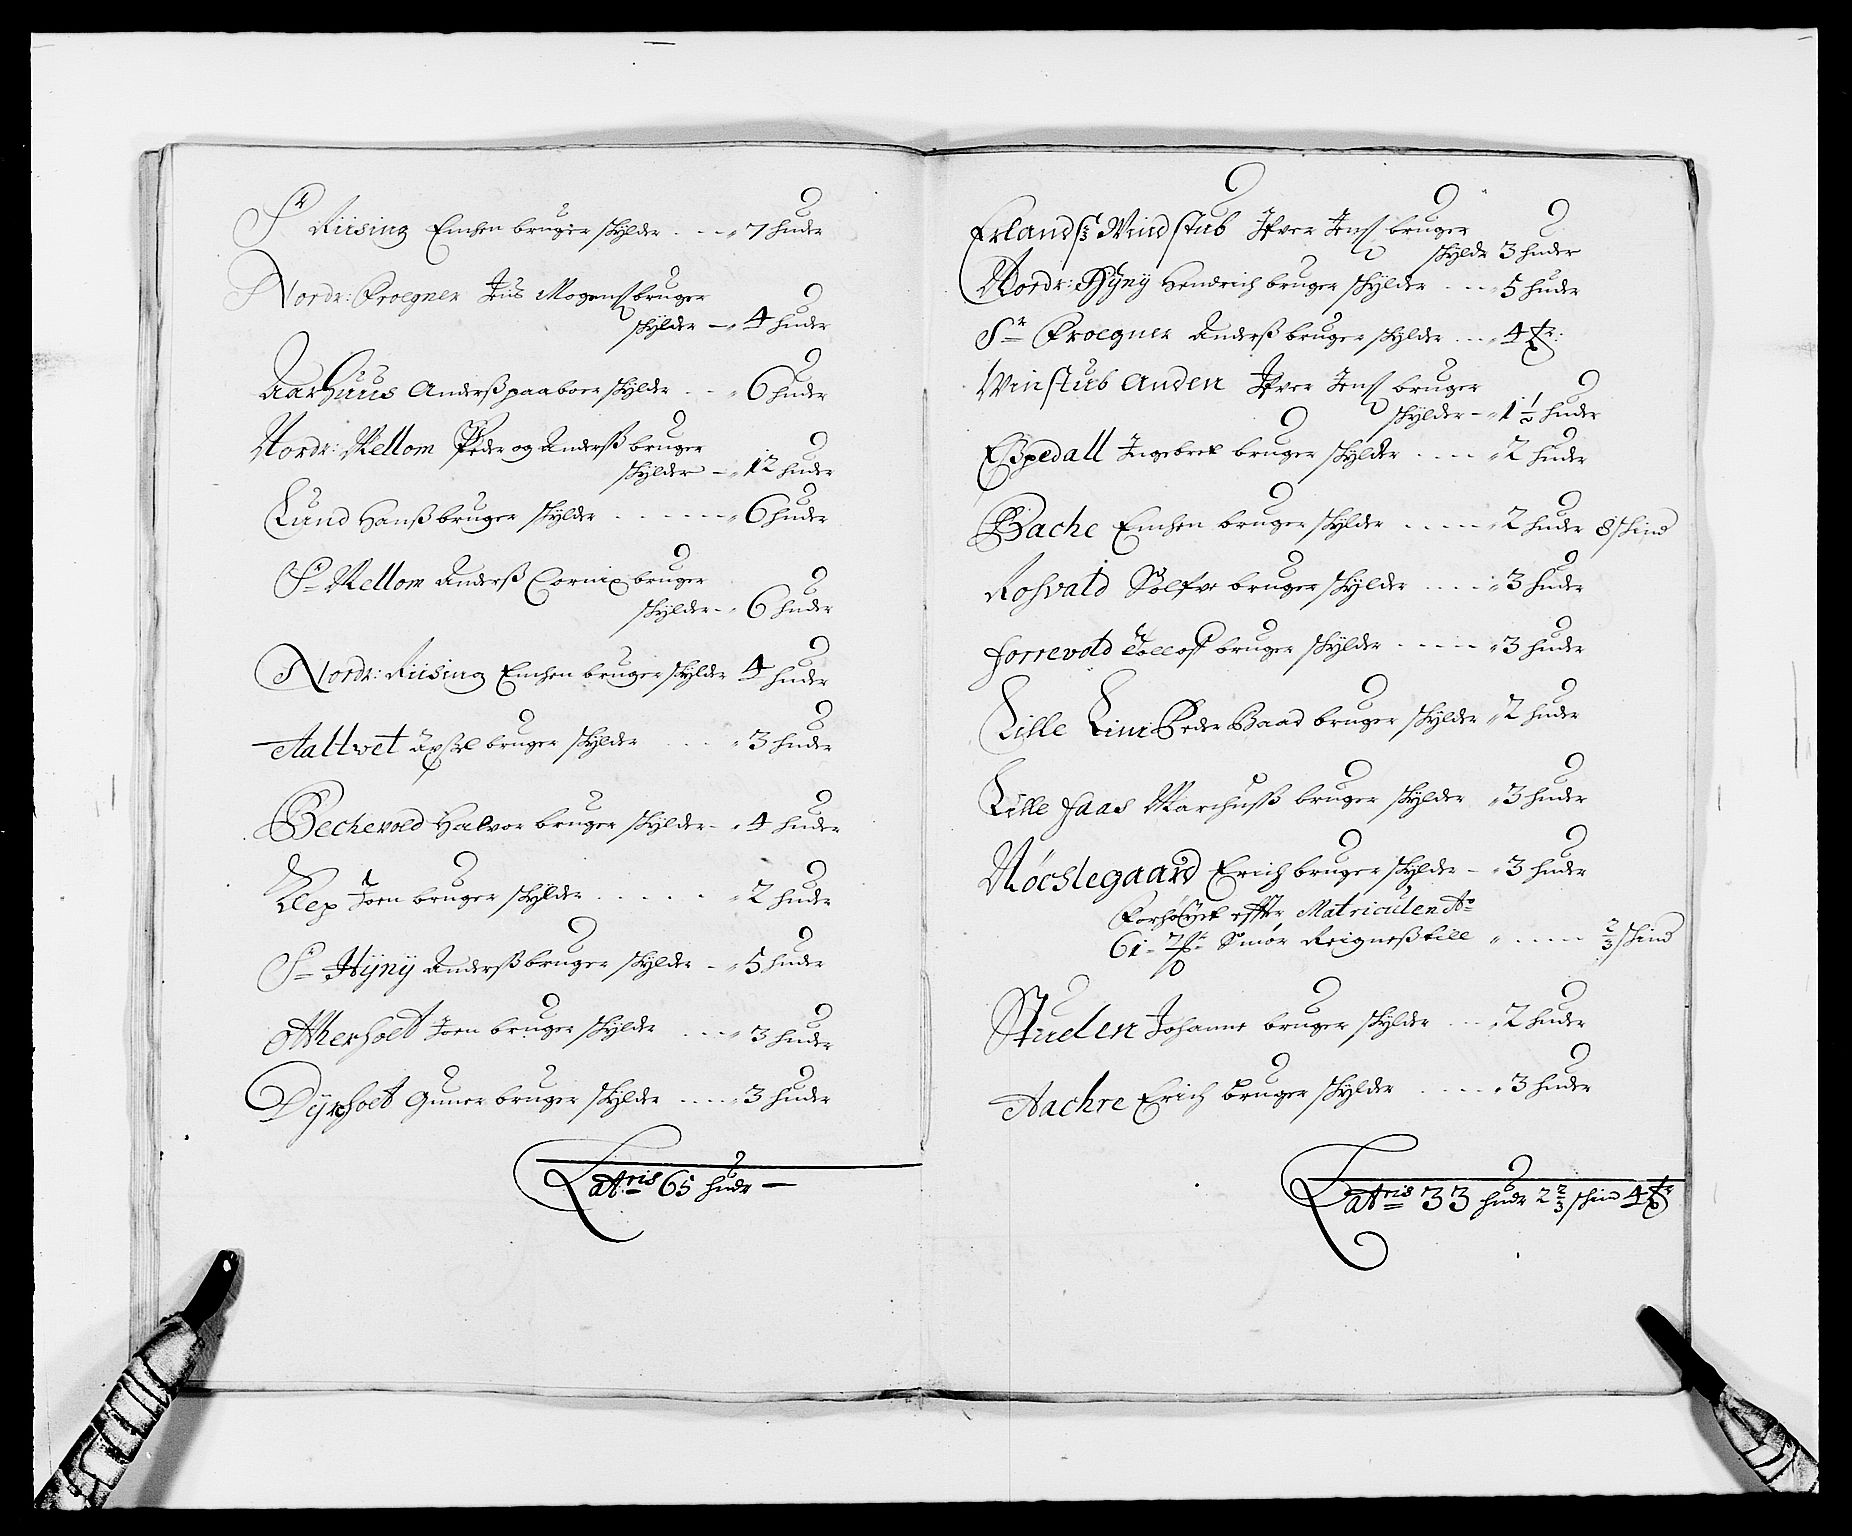 Sr Riising Emhen bruger skylder . . . 7 huder
Nordr: Froegner Jns Mogens bruger
skylder – 4 huder
Aarhuus Anderß paaboer skylder . . 6 huder
Nordr: Mellom Peder og Anderß bruger
skylder – 12 huder
Lund Hanß bruger skylder . . . . . . 6 huder
Sr Mellom Anderß Cornix bruger
skylder – 6 huder
Nordr: Riising Emhen bruger skylder 4 huder
Aallvet Axsel bruger skylder . . . . 3 huder
Bechevold Halvor bruger skylder – 4 huder
Klep Joen bruger skylder . . . . . 2 huder
Sr Hÿnÿ Anderß bruger skylder – 5 huder
Atherholt Joen bruger skylder . . . 3 huder
Dÿrholt Guner bruger skylder . . . . 3 huder
Lateris 65 hudr –
Erlandß Windstub Ifver Jens bruger
skylder 3 huder
Nordr: Hÿnÿ Hendrich bruger skylder . . . 5 huder
Sr Froegner Anderß bruger skylder . . . 4
Winstub Anden Ifver Jens bruger
skylder – 1 1/2 huder
Eßpedall Ingebret bruger skylder . . . . 2 huder
Bache Emhen bruger skylder . . . . . 2 huder 8 skind
Rosvald Sölfve bruger skylder . . . . 3 huder
forrevold Tollof bruger skylder . . . . . 3 huder
Lille Lini Peder Baad bruger skylder 2 huder
Lille faas Marchuß bruger skylder 3 huder
Nöchlegaard Erich bruger skylder – 3 huder
Forhöÿet effter Matriculen Ao
Smör Reigneß till . . . . . 2/3 skind
Studen Johanne bruger skylder . . . 2 huder
Aachre Erich bruger skylder . . . . . 3 huder
Lateris 33 hudr 2 2/3 skind 4